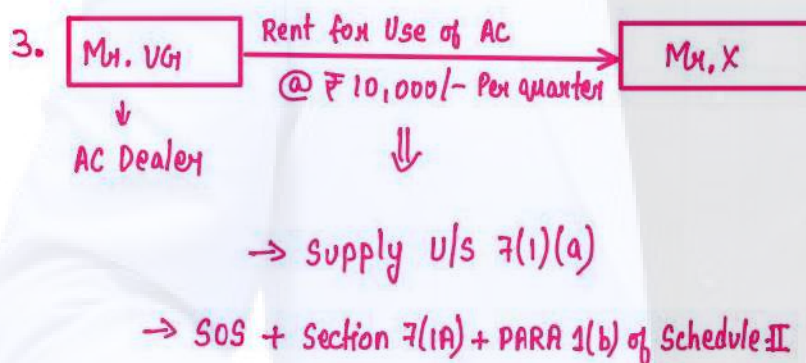 3. Mr. VG Rent for Use of AC Mr. X
@ ₹10,000/- Per quarter
AC Dealer
→ Supply U/S 7(1)(a)
→ SOS + Section 7(1A) + PARA 1(b) of Schedule-II